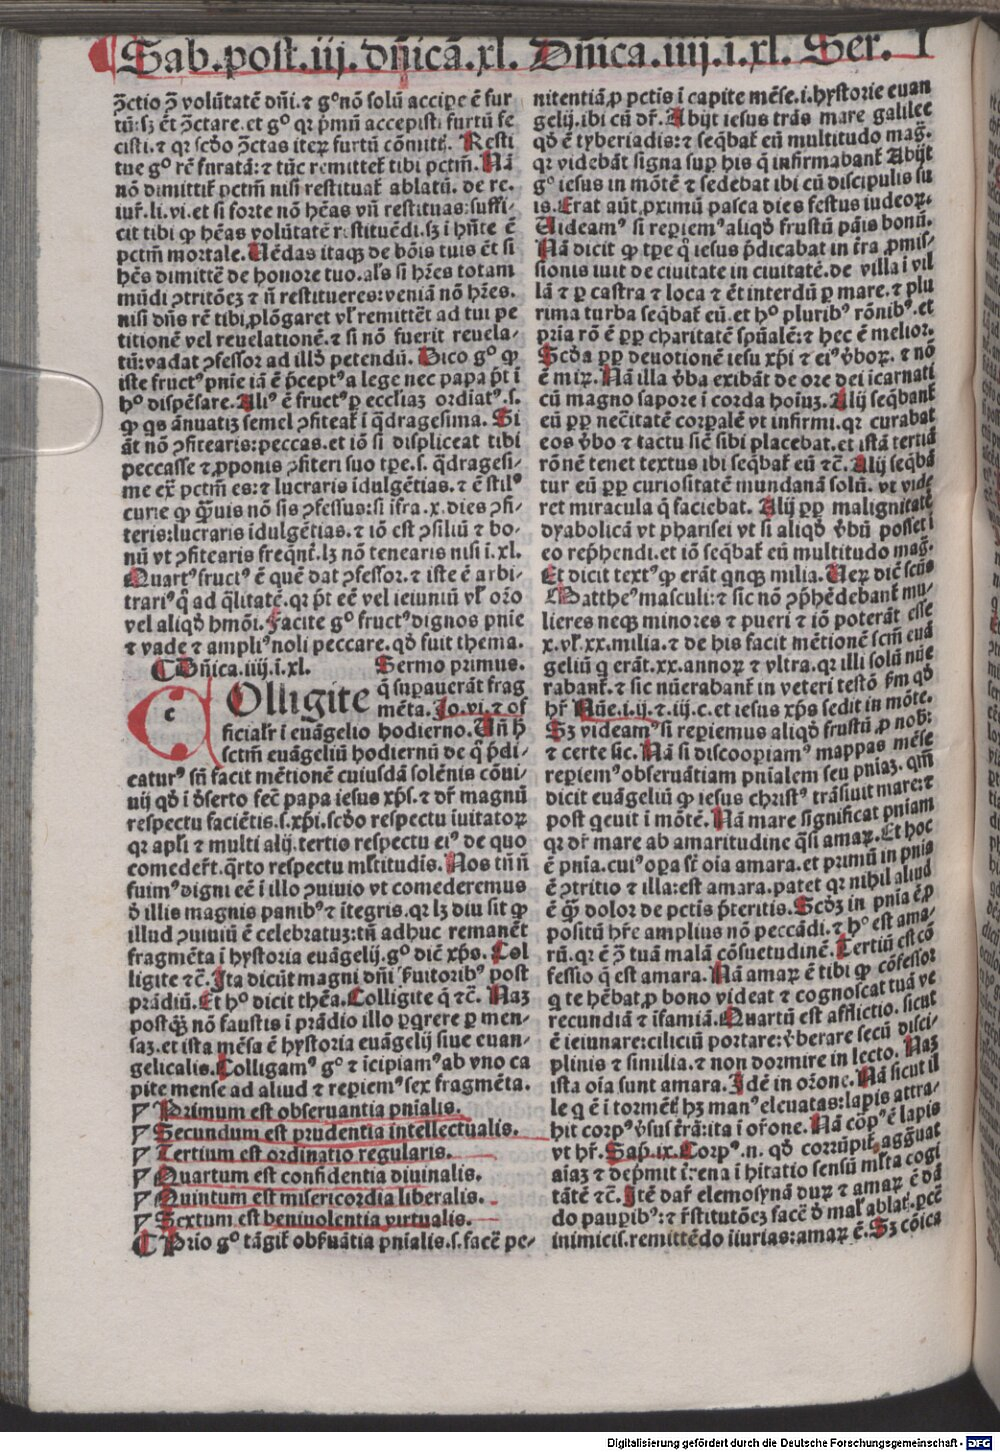 Sab.post.iij.dñicã.xl. Dñica.iiij.i.xl. Ser. I
ꝯctio ꝯ volũtatẽ dñi.⁊ gº nõ solũ accipe ẽ fur
tũ:sꝫ ẽt ꝯctare.et gº qꝛ pͥmũ accepisti furtũ fe
cisti.⁊ qꝛ scďo ꝯctas iteꝝ furtũ cõmittis. Resti
tue gº rẽ furatã:⁊ tũc remittet͛ tibi pctm̃. Nã
nõ dimittit͛ pctm̃ nisi restituat͛ ablatũ. de re.
iur͛.li.vi.et si forte nõ hẽas vñ restituas:suffi-
cit tibi ꝙ hẽas volũtatẽ restituẽdi.sꝫ i hñte ẽ
pctm̃ mortale. Uẽdas itaqꝫ de bõis tuis ẽt si
hẽs dimittẽ de honore tuo.als si hr̃es totam
mũdi ꝯtritõeꝫ ⁊ ñ restitueres:veniã nõ hr̃es.
nisi dñs rẽ tibi ꝓlõgaret vl͛ remittẽt ad tui pe
titionẽ vel reuelationẽ.⁊ si nõ fuerit reuela-
tũ:vadat ꝯfessor ad illď petendũ. Dico gº ꝙ
iste fructꝰ pnie iã ẽ p̃ceptꝰ a lege nec papa p̃t i
hº dispẽsare. Aliꝰ ẽ fructꝰ ꝑ eccliaꝫ ordiatꝰ.s.
ꝙ qs ãnuatiꝫ semel ꝯfiteat͛ i q̃dragesima. Si
ãt nõ ꝯfitearis:peccas.et iõ si displiceat tibi
peccasse ⁊ ꝓponis ꝯfiteri suo tꝑe.s. q̃dragesi-
me ex̃ pctm̃ es:⁊ lucraris idulgẽtias.⁊ ẽ stilº
curie ꝙ q̃uis nõ sis ꝯfessus:si ifra.x.dies ꝯfi-
teris:lucraris idulgẽtias.⁊ iõ est ꝯsiliũ ⁊ bo-
nũ vt ꝯfitearis freq̃nt͛.lꝫ nõ tenearis nisi i.xl.
Quartꝰ fructꝰ ẽ quẽ dat ꝯfessor.⁊ iste ẽ arbi-
trariꝰ q̃ ad q̃litatẽ.qꝛ p̃t eẽ vel ieiuniũ vl͛ or̃o
vel aliqď hmõi. Facite gº fructꝰ dignos pnie
⁊ vade ⁊ ampliꝰ noli peccare.qď fuit thema.
Dñica.iiij.i.xl. Sermo primus.
Colligite q̃ suꝑauerãt frag
mẽta. Jo.vi.⁊ of
ficialr͛ i euãgelio hodierno. Uñ ẖ
sctm̃ euãgeliũ hodiernũ de q̃ p̃di-
caturꝰ sũ facit mẽtionẽ cuiusdã solẽnis cõui-
uij qď i ďserto fec͛ papa iesus xp̃s.⁊ dr͛ magnũ
respectu faciẽtis.s.xp̃i.scďo respectu iuitatoꝝ
qꝛ apl̃i ⁊ multi alij.tertio respectu eiꝰ de quo
comeder͛t.q̃rto respectu ml̃titudis. Nos tñ ñ
fuimꝰ digni eẽ i illo ꝯuiuio vt comederemus
ď illis magnis panibꝰ ⁊ itegris.qꝛ lꝫ diu sit ꝙ
illud ꝯuiuiũ ẽ celebratuꝫ:tñ adhuc remanẽt
fragmẽta i hystoria euãgelij.gº dic͛ xp̃s. Col
ligite ⁊c̃. Ita dicũt magni dñi s͛uitoribꝰ post
prãdiũ. Et hº dicit thẽa. Colligite q̃ ⁊c̃. Naꝫ
postq̃ꝫ nõ faustis i prãdio illo ꝑgrere ꝑ men-
saꝫ.et ista mẽsa ẽ hystoria euãgelij siue euan-
gelicalis. Colligamꝰ gº ⁊ icipiamꝰ ab vno ca
pite mense ad aliud ⁊ reꝑiemꝰ sex fragmẽta.
Primum est obseruantia pnialis.
Secundum est prudentia intellectualis.
Tertium est ordinatio regularis.
Quartum est confidentia diuinalis.
Quintum est misericordia liberalis.
Sextum est beniuolentia virtualis.
Prio gº tãgit͛ obs͛uãtia pnialis.s.facẽ pe-
nitentiã ꝓ pctis i capite mẽse.i.hystorie euan
gelij.ibi cũ dr͛. Abijt iesus trãs mare galilee
qď ẽ tyberiadis:⁊ seq̃bat͛ eũ multitudo mag̃.
qꝛ videbãt signa suꝑ his q̃ infirmabant͛. Abijt
gº iesus in mõtẽ ⁊ sedebat ibi cũ discipulis su
is. Erat aũt ꝓximũ pasca dies festus iudeoꝝ.
Uideamꝰ si reꝑiemꝰ aliqď frustũ pãis bonũ.
Nã dicit ꝙ tꝑe q̃ iesus p̃dicabat in ẽra ꝓmis-
sionis iuit de ciuitate in ciuitatẽ.de villa i vil
lã ⁊ ꝑ castra ⁊ loca ⁊ ẽt interdũ ꝑ mare.⁊ plu
rima turba seq̃bat͛ eũ.et hº pluribꝰ rõnibꝰ.et
pria rõ ẽ ꝓꝑ charitatẽ spũalẽ:⁊ hec ẽ melior.
Scďa ꝓꝑ deuotionẽ iesu xp̃i ⁊ eiꝰ v̉boꝝ.⁊ nõ
ẽ miꝝ. Nã illa v̉ba exibãt de ore dei icarnati
cũ magno sapore i corda hoĩuꝫ. Alij seq̃bant͛
eũ ꝓꝑ nec̃itatẽ corꝑalẽ vt infirmi.qꝛ curabat
eos v̉bo ⁊ tactu sic͛ sibi placebat.et istã tertiã
rõnẽ tenet textus ibi seq̃bat͛ eũ ⁊c̃. Alij seq̃bã
tur eũ ꝓꝑ curiositatẽ mundanã solũ. vt vide
ret miracula q̃ faciebat. Alij ꝓꝑ malignitatẽ
dyabolicã vt pharisei vt si aliqď v̉bũ posset i
eo rep̃hendi.et iõ seq̃bat͛ eũ multitudo mag̃.
Et dicit textꝰ ꝙ erãt qnqꝫ milia. Ueꝝ dic͛ sctũs
Mattheꝰ masculi:⁊ sic nõ ꝯp̃hẽdebant͛ mu-
lieres neqꝫ minores ⁊ pueri ⁊ iõ poterãt esse
x.vl͛.xx.milia.⁊ de his facit mẽtionẽ scm̃ euã
geliũ q erãt.xx.annoꝝ ⁊ vltra.qꝛ illi solũ nũe
rabant͛.⁊ sic nũerabant͛ in veteri testõ s̃m qď
hr͛ Nũe.i.ij.⁊.iij.c.et iesus xp̃s sedit in mõte.
Sꝫ videamꝰ si reꝑiemus aliqď frustũ ꝓ nob̃:
⁊ certe sic. Nã si discooꝑiamꝰ mappas mẽse
reꝑiemꝰ obseruãtiam pnialem seu pniaꝫ. qm̃
dicit euãgeliũ ꝙ iesus christꝰ trãsiuit mare:⁊
post ꝑuenit i mõtẽ. Nã mare significat pniam
qꝛ dr͛ mare ab amaritudine q̃si amaꝝ. Et hoc
ẽ pnia.cuiꝰ oꝑa st͛ oia amara.et primũ in pnia
ẽ ꝯtritio ⁊ illa:est amara.patet qꝛ nihil aliud
ẽ q̃ꝫ dolor de pctis p̃teritis. Scďꝫ in pnia ẽ ꝓ
positũ hr̃e amplius nõ peccãdi.⁊ hº est ama-
rũ.qꝛ ẽ ꝯ tuã malã cõsuetudinẽ. Tertiũ est cõ
fessio q̃ est amara. Nã amaꝝ ẽ tibi ꝙ cõfessor
q te hẽbat ꝓ bono videat ⁊ cognoscat tuã ve
recundiã ⁊ ifamiã. Quartũ est afflictio. sicut
ẽ ieiunare:ciliciũ portare:v̉berare secũ disci-
plinis ⁊ similia.⁊ non dormire in lecto. Naꝫ
ista oĩa sunt amara. Idẽ in or̃one. Nã sicut il
le q ẽ i tormẽt͛ hꝫ manꝰ eleuatas:lapis attra-
hit corpꝰ v̉sus ẽrã:ita i or̃one. Nã cõpꝰ ẽ lapis
vt hr͛. Sap̃.ix. Corpꝰ.n. qď corrũpit͛ aggũat
aiaꝫ ⁊ dep̃mit i:rena i hitatio sensũ ml̃ta cogi
tãtẽ ⁊c̃. Itẽ dar͛ elemosynã duꝝ ⁊ amaꝝ ẽ dã
do pauꝑibꝰ:⁊ r̃stitutõeꝫ facẽ ď mal͛ ablat͛.ꝑcẽ
inimicis.remittẽdo iiurias:amaꝝ ẽ. Sꝫ cõica
Digitalisierung gefördert durch die Deutsche Forschungsgemeinschaft - DFG